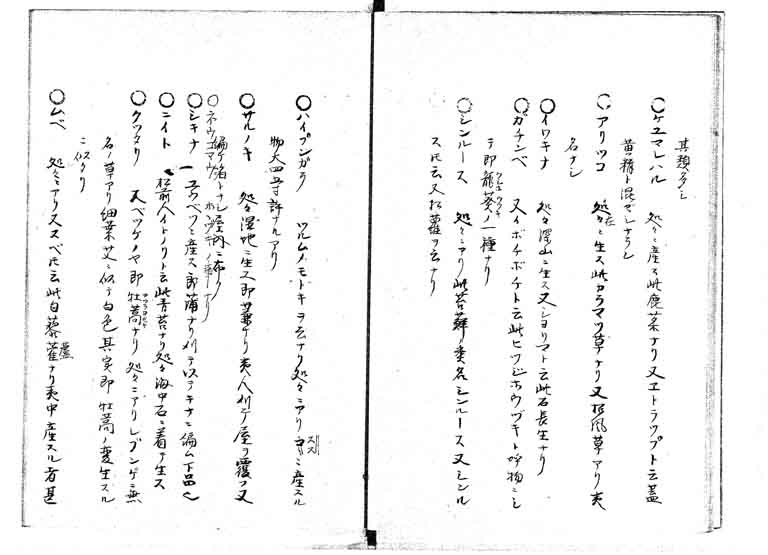 其類多シ
◯ケユマレハル 処々ニ産ス此鹿菜ナリ又ヱトラツプト云蓋
黄精ト混マレナラシ
◯アリツコ 処々ニ在生ス此カラマツ草ナリ又防風草アリ夷
名ナシ
◯イワキナ 処々深山ニ生ス又シヨリマト云此石長生ナリ
◯ガチンベ 又イボチボチト云此ヒツジホウヅキト呼物ニシ
テ即龍葵ノ一種ナリ
◯シンルース 処々ニアリ此苔蘚ノ裏名シンルース又シンル
スト云又松蘿ヲ云ナリ
◯ハイプンガラ ツルムメモドキヲ云ナリ処々ニアリ ススニ産スル
物大四五寸許ナルアリ
◯サルノキ 処々湿地ニ生ス即葦ナリ夷人刈テ屋ヲ覆フ又
編テ箔トナシ屋内ニ布ク
◯シキナ 一ユウベツニ産ス即蒲ナリ刈テ以テキナニ編ム下品也
◯ニイト 松前ヘイトノリト云此青苔ナリ処々海中石ニ着テ生ス
◯クツタリ 又ベツゲノヤ即牡蒿ナリ処々ニアリレブンゲニ無
名ノ草アリ細葉艾ニ似テ白色其実即牡蒿ノ変生スル
ニ似タリ
◯ムベ 処々ニアリススベト云此白藜蘆ナリ夷中産スル者甚